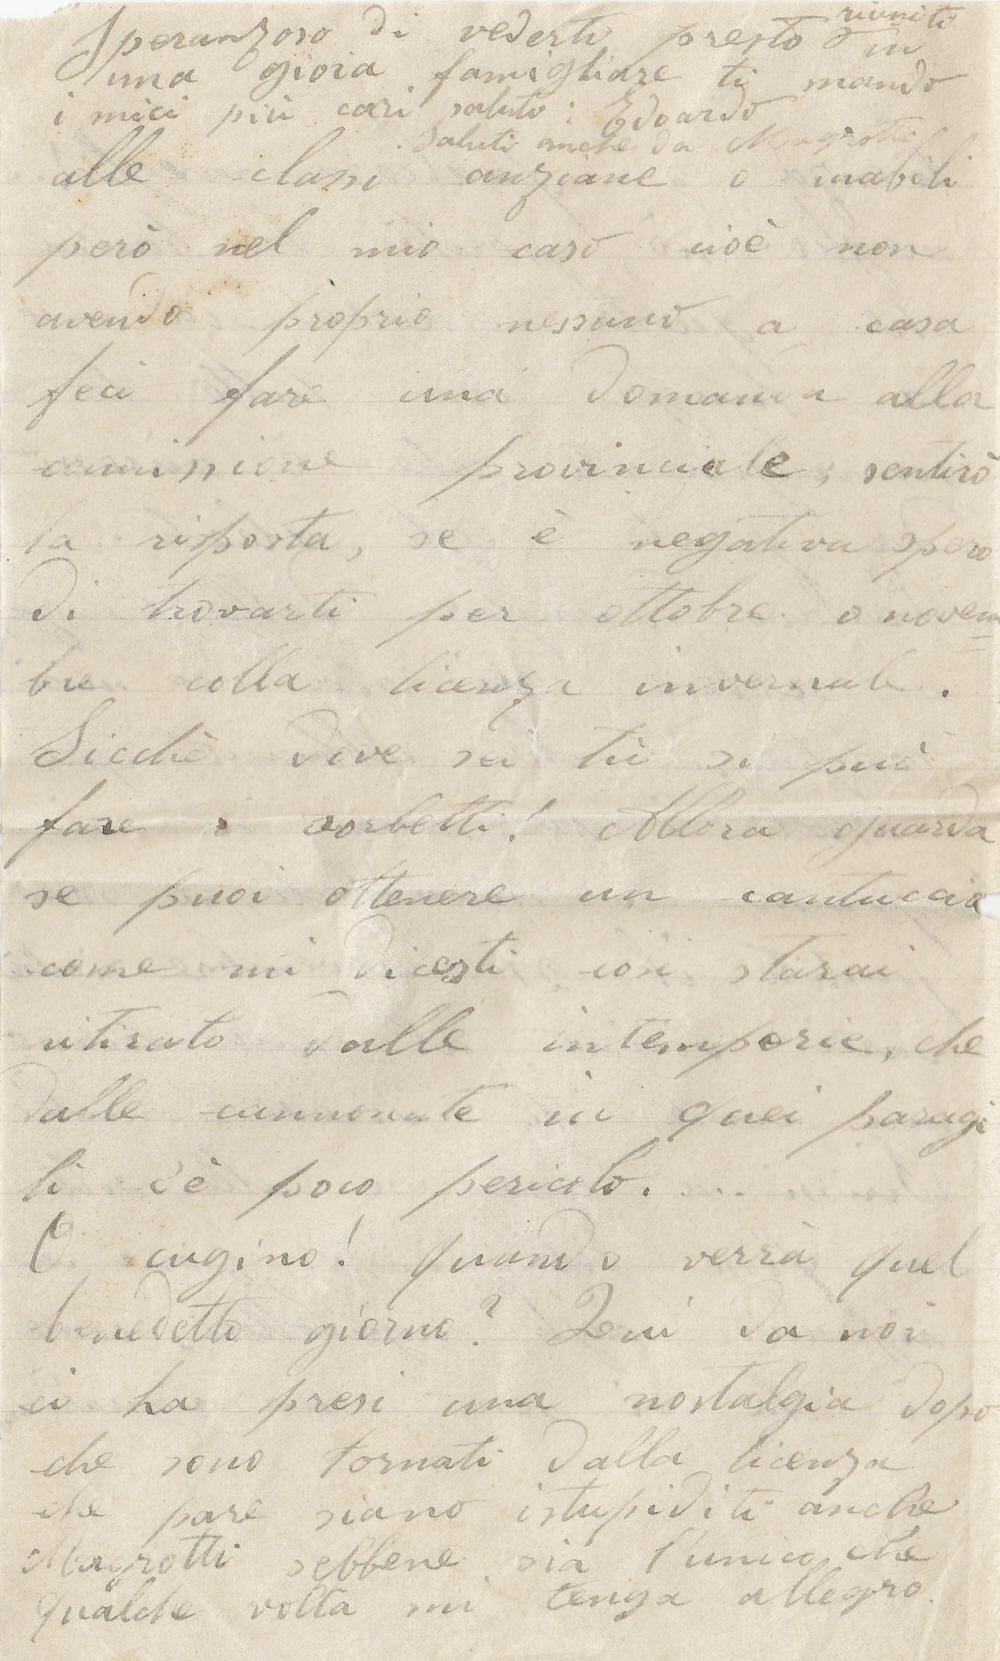 Speranzoso di vederti presto riuniti in
una gioia famigliare ti mando
i miei più cari saluti; Edoardo
Saluti anche da Magrotti
alle classi anziane o inabili
però nel mio caso cioè non
avendo proprio nessuno a casa
feci fare una domanda alla
comissione provinciale, sentirò
la risposta, se è negativa spero
di trovarti per ottobre o novem
bre colla licenza invernale.
Sicchè dove sei tù si può
fare i sorbetti! Allora guarda
se puoi ottenere un cantuccio
come mi dicesti così starai
ritirato dalle intemperie, che
dalle cannonate in quei paragi
li c'è poco pericolo. . . .
O cugino! quando verrà quel
benedetto giorno? Qui da noi
ci ha presi una nostalgia dopo
che sono tornati dalla licenza
che pare siano istupiditi anche
Magrotti sebbene sia l'unico che
qualche volta mi tenga allegro.